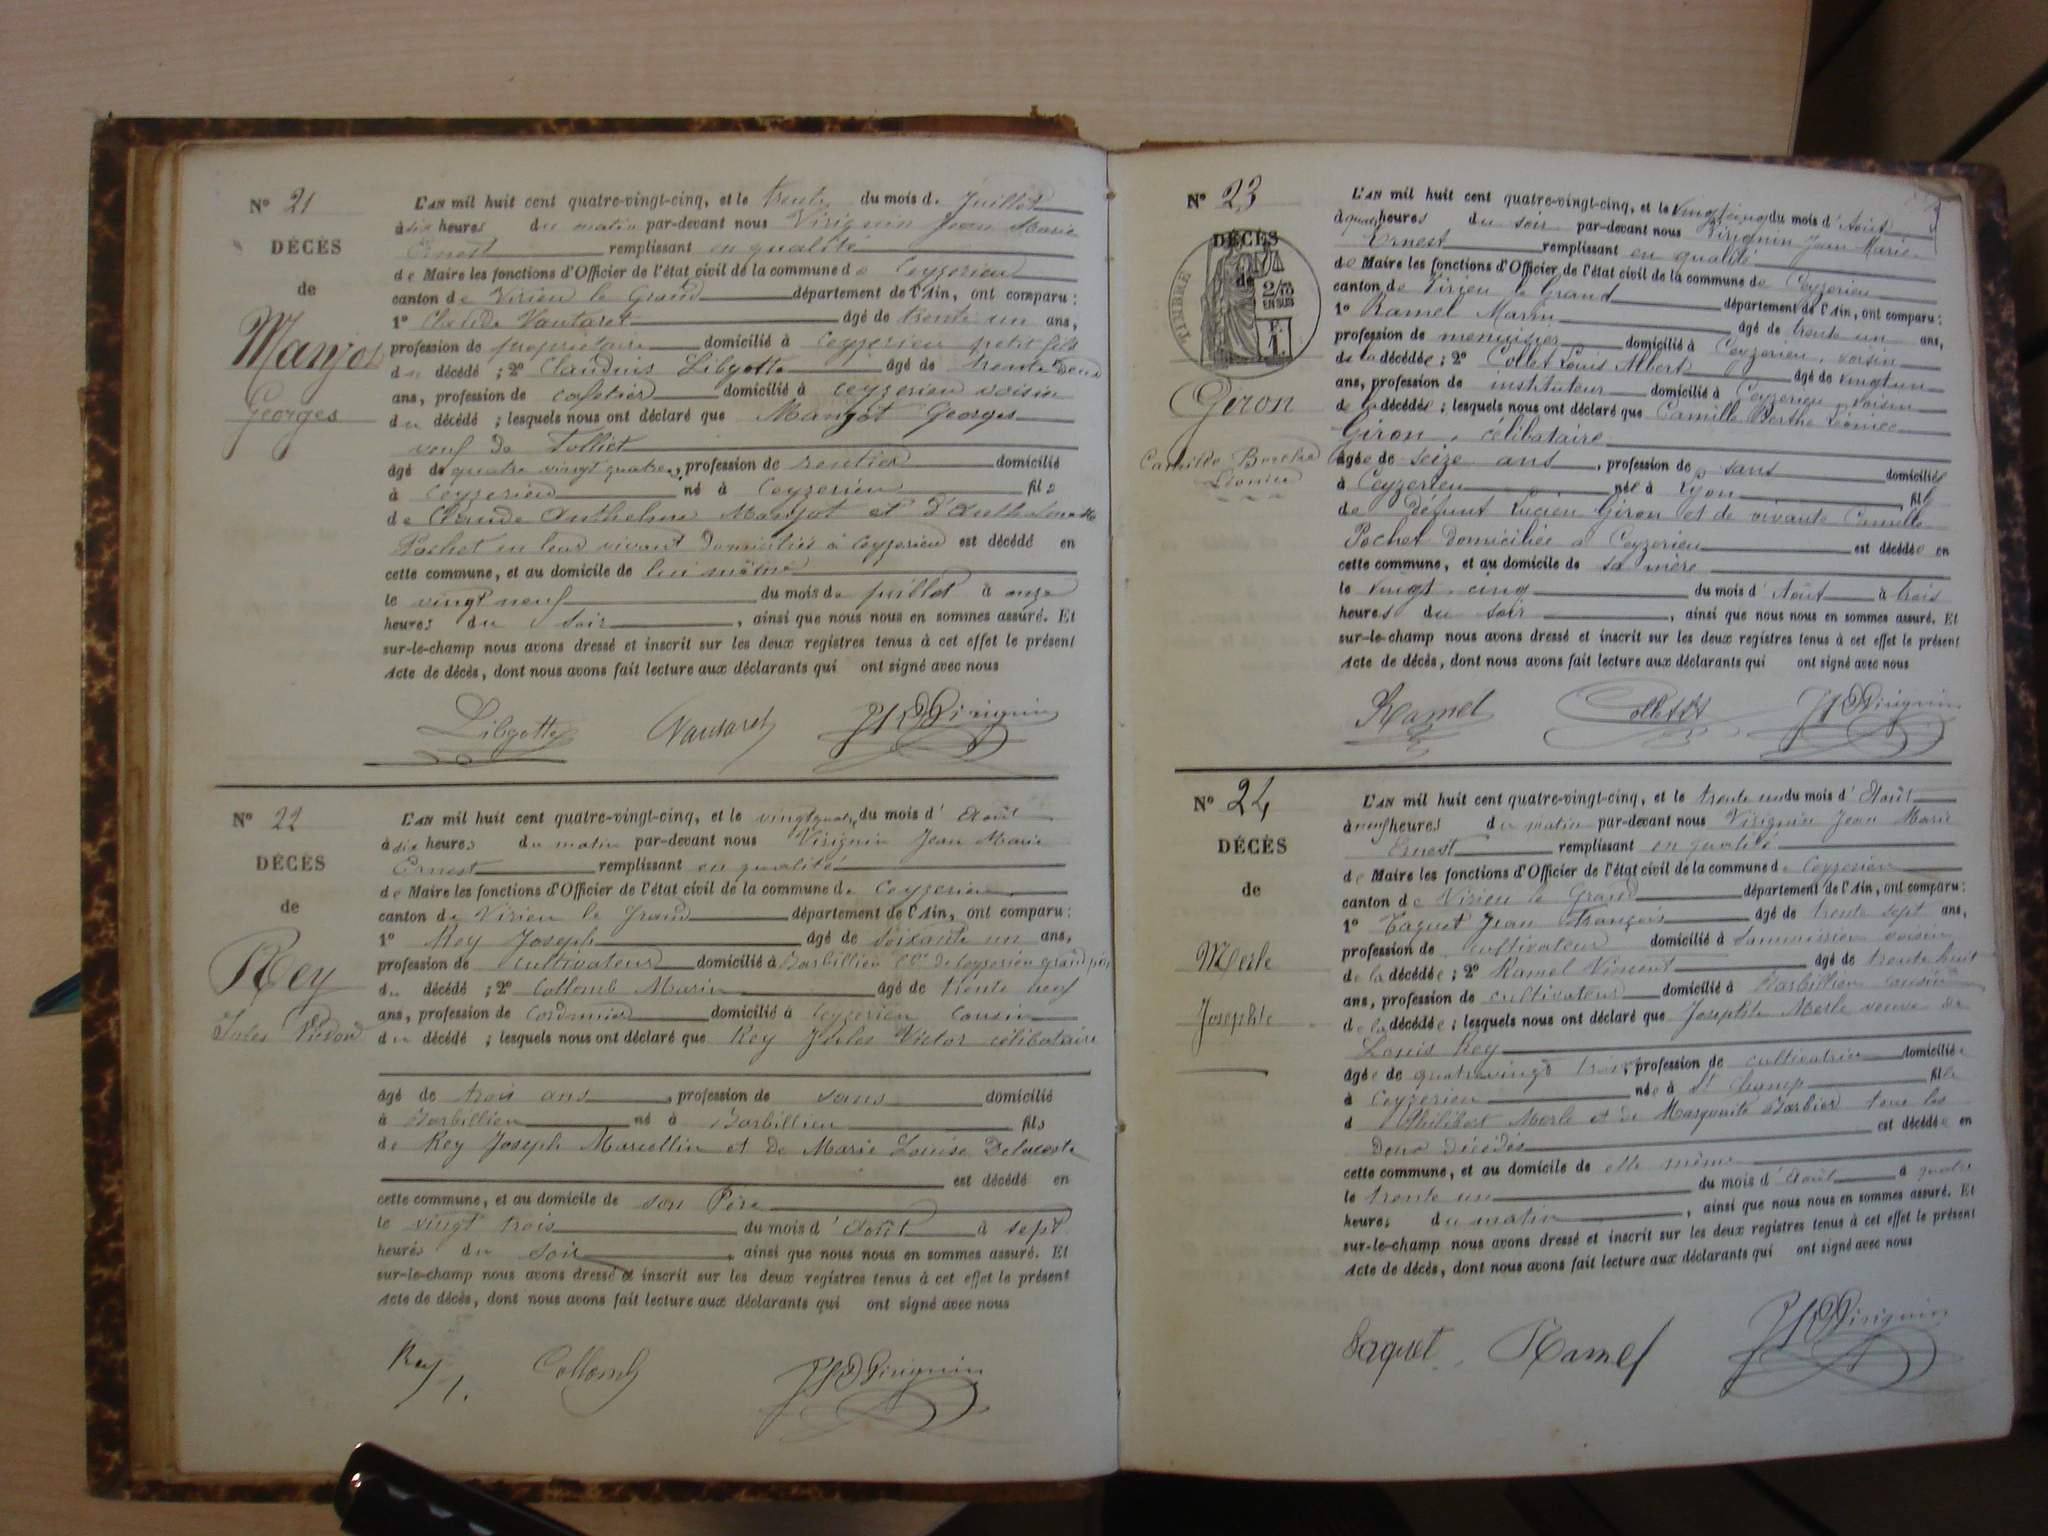 Nº 21
DÉCÈS
de
Manjot
Georges
L'AN mil huit cent quatre-vingt-cinq, et le trente du mois de Juillet
à dix heures du matin par-devant nous Virignin Jean Marie
Ernest remplissant en qualité
de Maire les fonctions d'Officier de l'état civil de la commune de Ceyzerieu
canton de Virieu le Grand département de l'Ain, ont comparu :
1º Claude Vautaret âgé de trente un ans,
profession de propriétaire domicilié à Ceyzerieu petit fils
du décédé ; 2º Claudius Libgotte âgé de trente deux
ans, profession de cafetier domicilié à Ceyzerieu voisin
du décédé ; lesquels nous ont déclaré que Manjot Georges
veuf de Tolliet
âgé de quatre vingt quatre, profession de rentier domicilié
à Ceyzerieu né à Ceyzerieu fils
de Claude Anthelme Manjot et d'
Pochet en leur vivant domiciliés à Ceyzerieu est décédé en
cette commune, et au domicile de lui même
le vingt neuf du mois de juillet à onze
heures du soir, ainsi que nous nous en sommes assuré. Et
sur-le-champ nous avons dressé et inscrit sur les deux registres tenus à cet effet le présent
Acte de décès, dont nous avons fait lecture aux déclarants qui ont signé avec nous
Libgotte Vautaret Virignin
Nº 22
DÉCÈS
de
Rey
Jules Victor
L'AN mil huit cent quatre-vingt-cinq, et le vingt quatre du mois d'Août
à dix heures du matin par-devant nous Virignin Jean Marie
Ernest remplissant en qualité
de Maire les fonctions d'Officier de l'état civil de la commune de Ceyzerieu
canton de Virieu le Grand département de l'Ain, ont comparu :
1º Rey Joseph âgé de soixante un ans,
profession de cultivateur domicilié à Barbillieu Cne de Ceyzerieu grand père
du décédé ; 2º Collomb Marin âgé de trente neuf
ans, profession de cordonnier domicilié à Ceyzerieu cousin
du décédé ; lesquels nous ont déclaré que Rey Jules Victor célibataire
âgé de trois ans, profession de sans domicilié
à Barbillieu né à Barbillieu fils
de Rey Joseph Marcellin et de Marie Louise Delacoste
est décédé en
cette commune, et au domicile de son Père
le vingt trois du mois d'Août à sept
heures du soir, ainsi que nous nous en sommes assuré. Et
sur-le-champ nous avons dressé et inscrit sur les deux registres tenus à cet effet le présent
Acte de décès, dont nous avons fait lecture aux déclarants qui ont signé avec nous
Rey J. Collomb Virignin
Nº 23
DÉCÈS
de
TIMBRE
2/10
EN SUS
F.
1.
Giron
Camille Berthe
Léonice
L'AN mil huit cent quatre-vingt-cinq, et le vingt cinq du mois d'Août
à quatre heures du soir par-devant nous Virignin Jean Marie
Ernest remplissant en qualité
de Maire les fonctions d'Officier de l'état civil de la commune de Ceyzerieu
canton de Virieu le Grand département de l'Ain, ont comparu :
1º Ramel Marin âgé de trente un ans,
profession de menuisier domicilié à Ceyzerieu, voisin
de la décédée ; 2º Collet Louis Albert âgé de vingt un
ans, profession de instituteur domicilié à Ceyzerieu, voisin
de la décédée ; lesquels nous ont déclaré que Camille Berthe Léonice
Giron, célibataire
âgée de seize ans, profession de sans domiciliée
à Ceyzerieu née à Lyon, fille
de défunt Lucien Giron et de vivante Camille
Pochet domiciliée à Ceyzerieu est décédée en
cette commune, et au domicile de sa mère
le vingt cinq du mois d'Août à trois
heures du soir, ainsi que nous nous en sommes assuré. Et
sur-le-champ nous avons dressé et inscrit sur les deux registres tenus à cet effet le présent
Acte de décès, dont nous avons fait lecture aux déclarants qui ont signé avec nous
Ramel Collet Virignin
Nº 24
DÉCÈS
de
Merle
Josephte
L'AN mil huit cent quatre-vingt-cinq, et le trente un du mois d'Août
à neuf heures du matin par-devant nous Virignin Jean Marie
Ernest remplissant en qualité
de Maire les fonctions d'Officier de l'état civil de la commune de Ceyzerieu
canton de Virieu le Grand département de l'Ain, ont comparu :
1º Jean François âgé de trente sept ans,
profession de cultivateur domicilié à voisin
de la décédée ; 2º Ramel Vincent âgé de trente huit
ans, profession de cultivateur domicilié à Barbillieu cousin
de la décédée ; lesquels nous ont déclaré que Josephte Merle veuve de
Louis Rey
âgée de quatre vingt trois, profession de cultivatrice domiciliée
à Ceyzerieu née à St Champ fille
d Philibert Merle et de Marguerite Barbier tous les
deux décédés est décédée en
cette commune, et au domicile de elle même
le trente un du mois d'Août à quatre
heures du matin, ainsi que nous nous en sommes assuré. Et
sur-le-champ nous avons dressé et inscrit sur les deux registres tenus à cet effet le présent
Acte de décès, dont nous avons fait lecture aux déclarants qui ont signé avec nous
Ramel Virignin